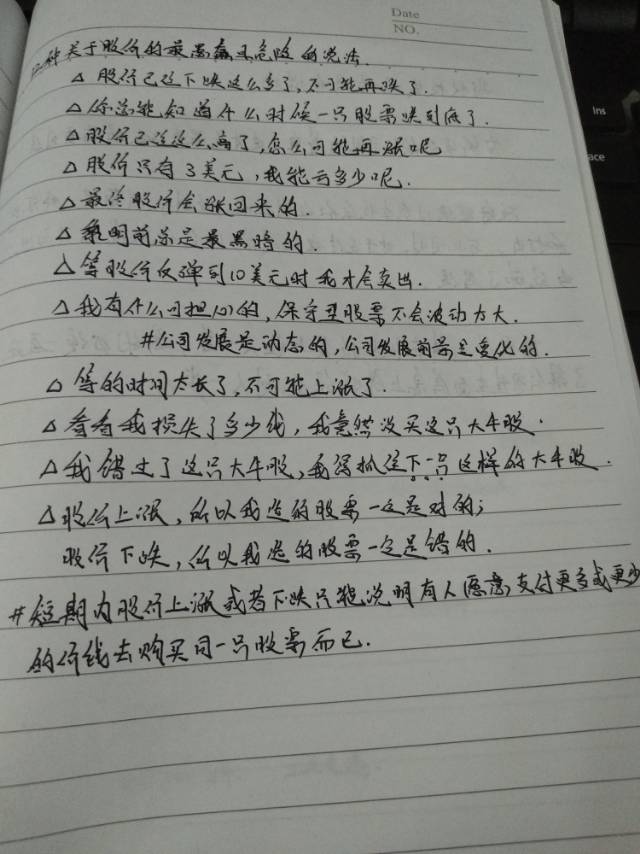 Date
NO.
Ins
ace
12种关于股价的最愚蠢且危险的说法.
△ 股价已经下跌这么多了,不可能再跌了.
△ 你总能知道什么时候一只股票跌到底了.
△ 股价已经这么高了,怎么可能再涨呢
△ 股价只有3美元,我能亏多少呢.
△ 最终股价会涨回来的.
△ 黎明前总是最黑暗的.
△ 等股价反弹到10美元时我才会卖出.
△ 我有什么可担心的,保守型股票不会波动太大.
#公司发展是动态的,公司发展前景是变化的.
△ 等的时间太长了,不可能上涨了.
△ 看看我损失了多少钱,我竟然没买这只大牛股.
△ 我错过了这只大牛股,我得抓住下一只这样的大牛股.
△ 股价上涨,所以我选的股票一定是对的;
股价下跌,所以我选的股票一定是错的.
#短期内股价上涨或者下跌只能说明有人愿意支付更多或更少
的价钱去购买同一只股票而已.